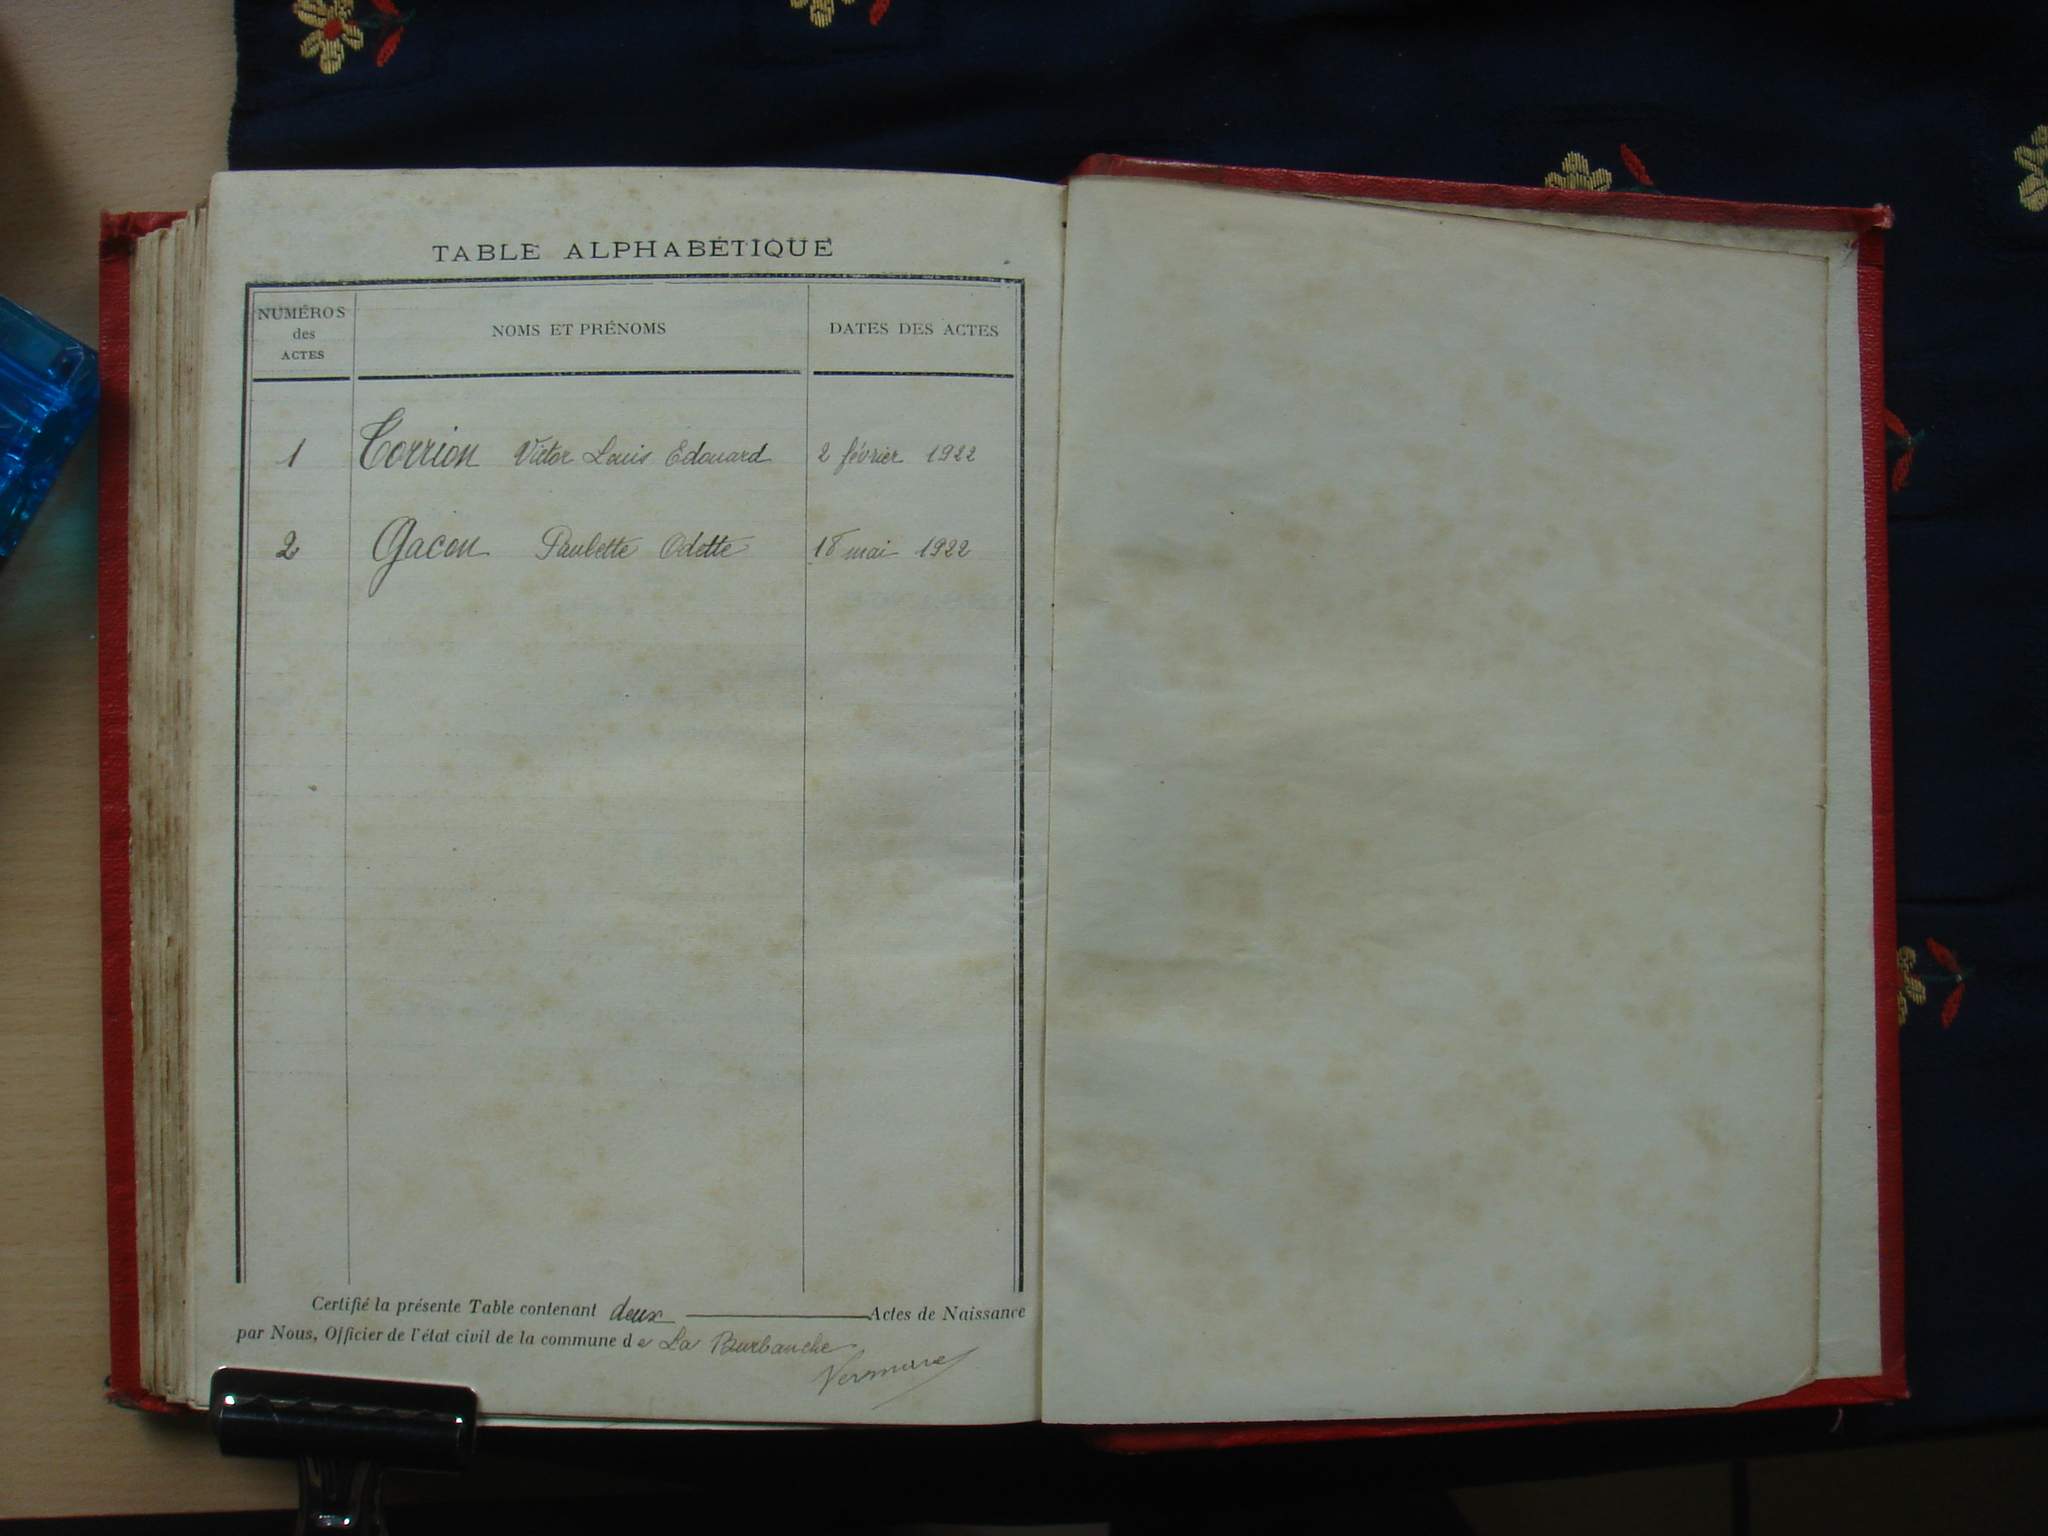 TABLE ALPHABÉTIQUE
NUMÉROS des ACTES NOMS ET PRÉNOMS DATES DES ACTES
1 Torrion Victor Louis Edouard 2 février 1922
2 Gacon Paulette Odette 18 mai 1922
Certifié la présente Table contenant deux Actes de Naissance
par Nous, Officier de l'état civil de la commune de La Burbanche
Vermare